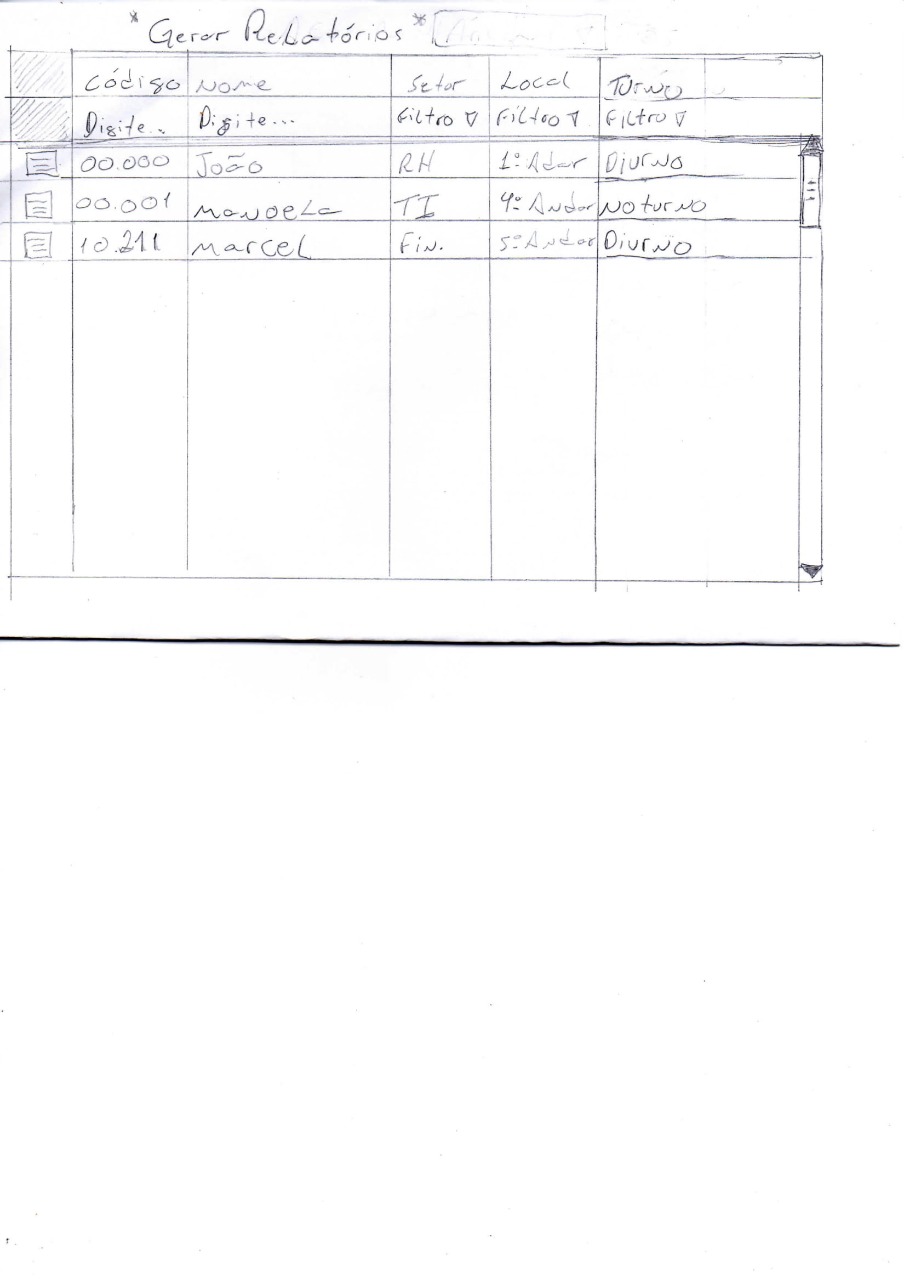 * Gerar Relatórios *
Código Nome Setor Local Turno
Digite... Digite... Filtro ▽ Filtro ▽ Filtro ▽
00.000 João RH 1º Adar Diurno
00.001 Manoela TI 4º Andar Noturno
10.211 Marcel Fin. 5º Andar Diurno